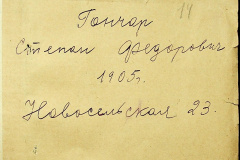 14
Гончар
Степан Федорович
1905г.
Новосельская 23.